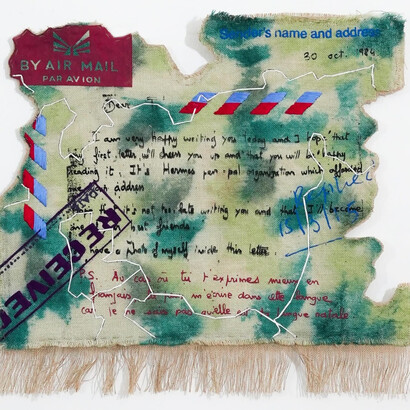 BY AIR MAIL
PAR AVION
Sender's name and address
30 oct. 1984
Dear
I am very happy writing you today and I hope that
first letter will dress you up and that you will be happy
reading it. It's Hermes pen pal organisation which
address
it's not too late writing you and that I'll become
friends.
have a photo of myself inside this letter.
RECEIVED
P.S. Au cas où tu t'exprimes mieux en
français, dans cette langue
car je ne sais pas quelle est ta langue natale